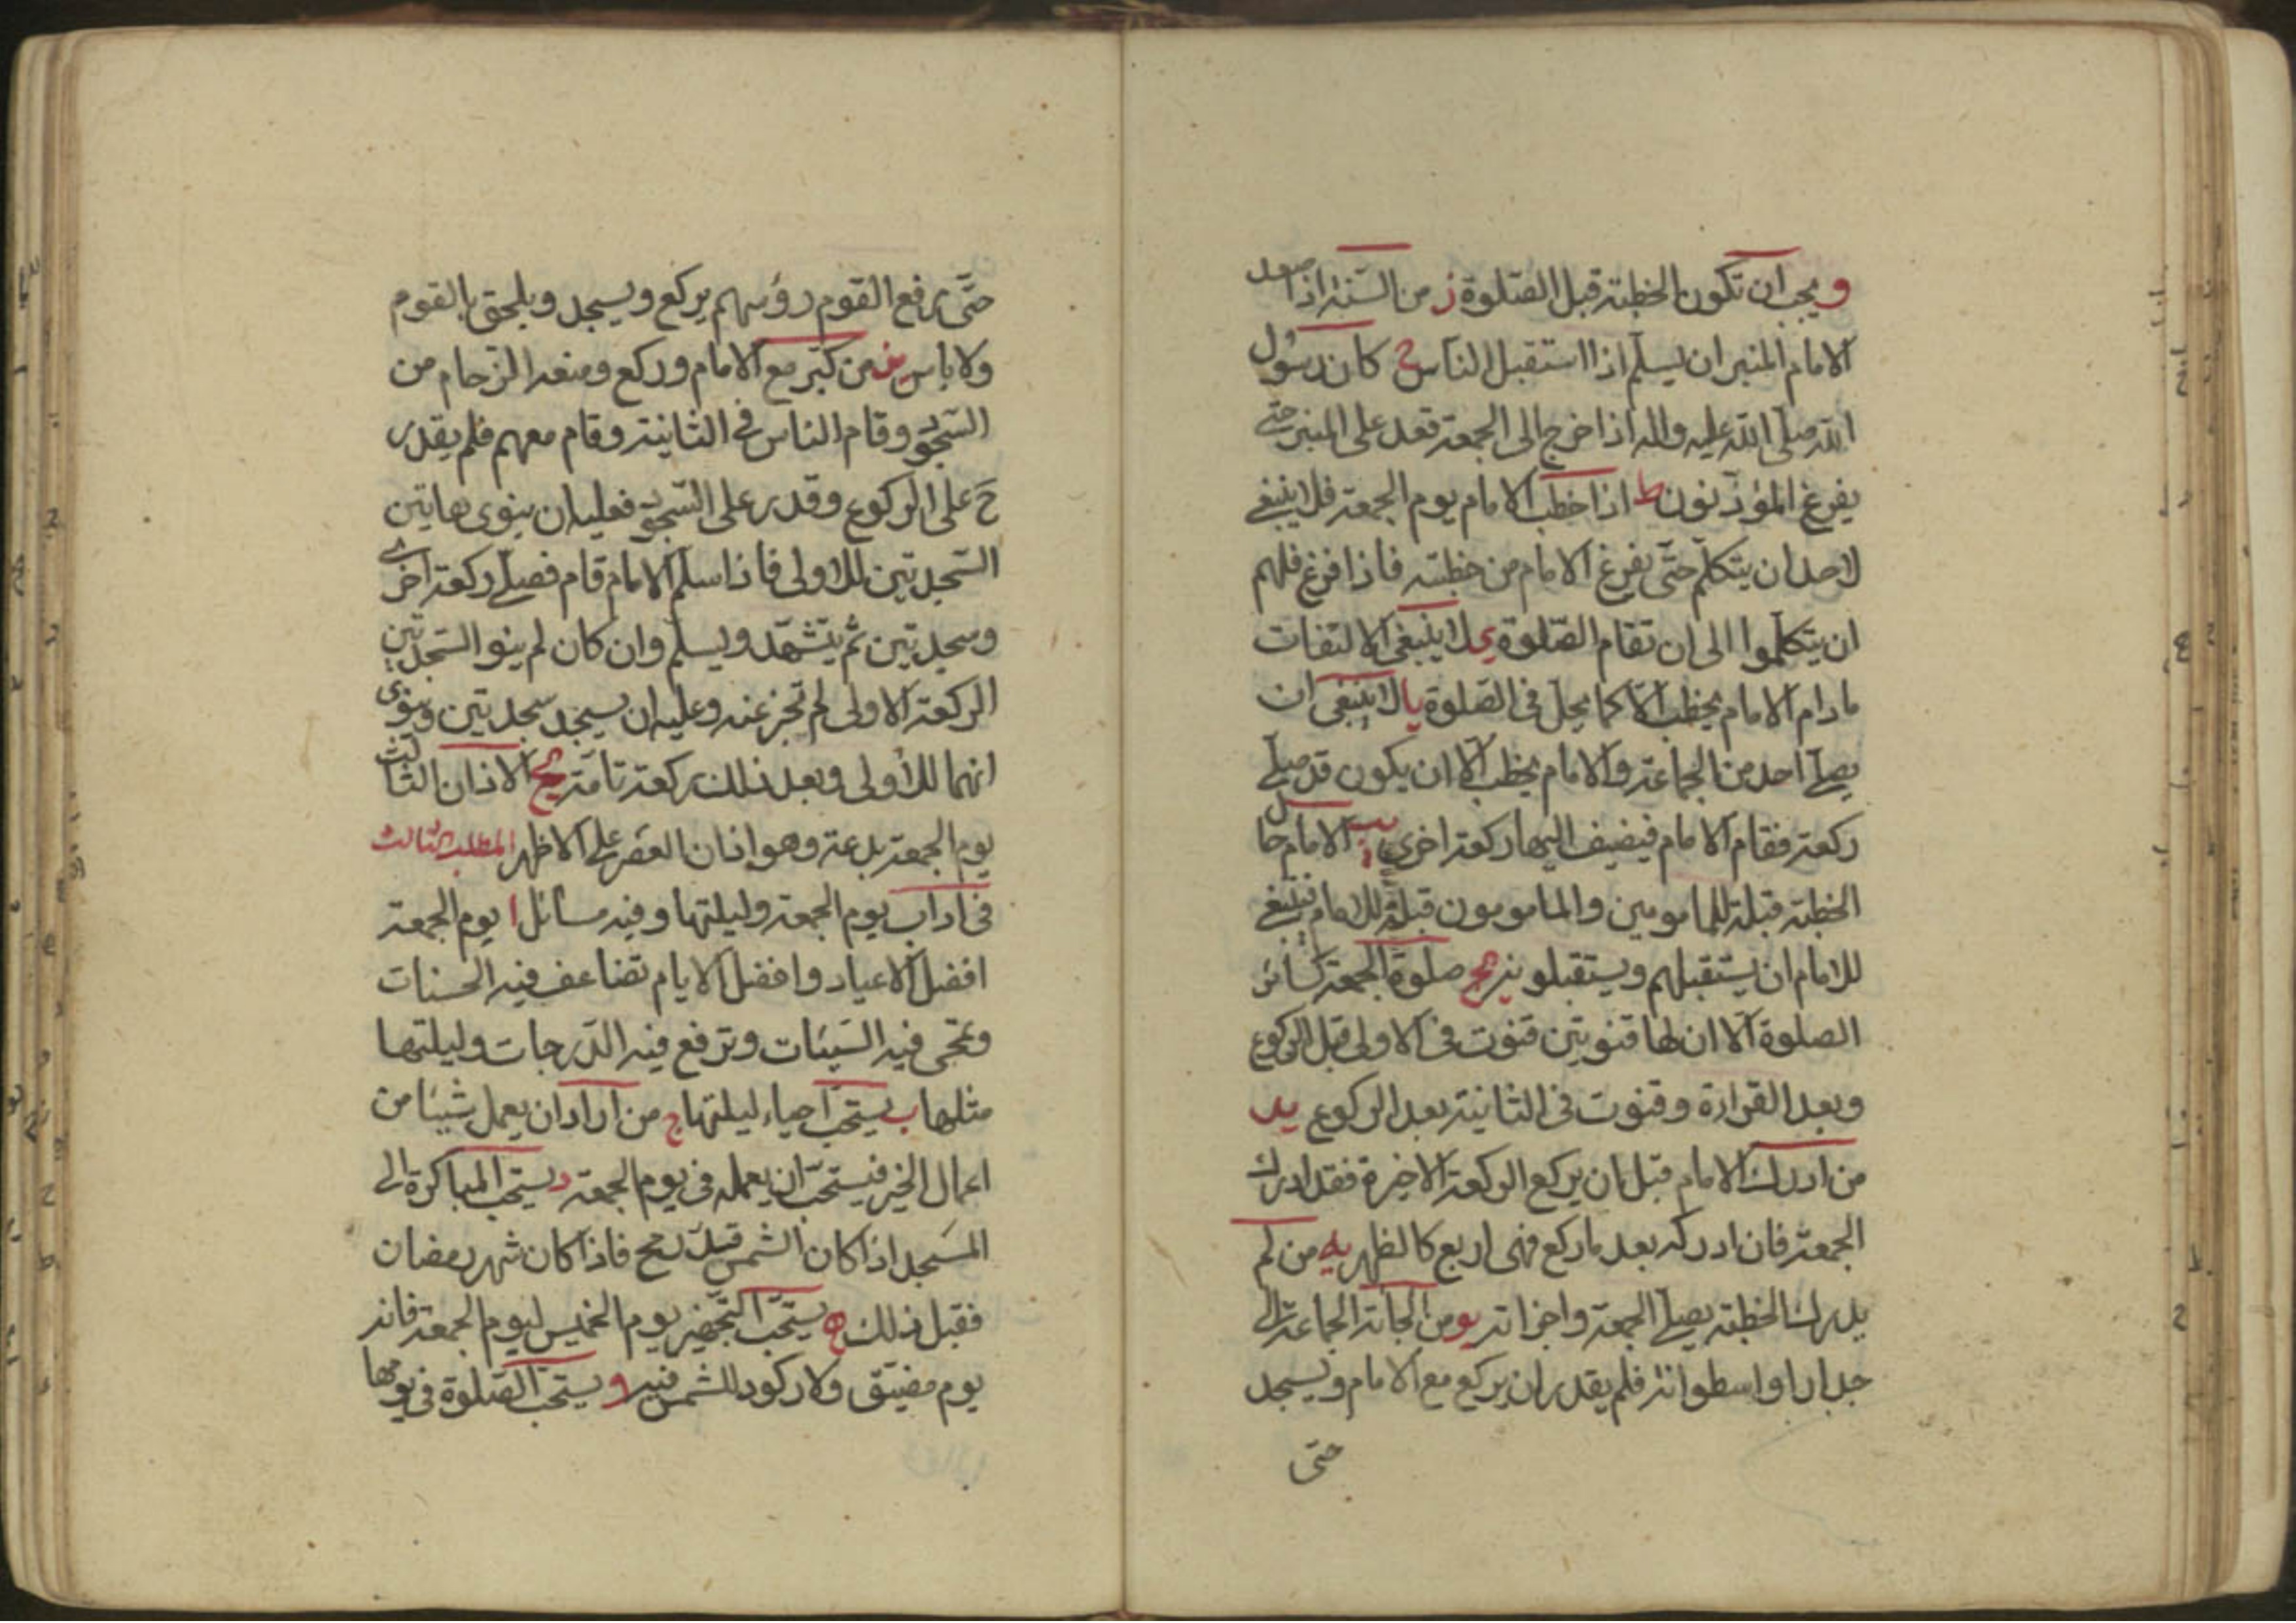 و يجب ان تكون الخطبة قبل الصّلوة ز من السّنة اذا صعد
الامام المنبر ان يسلّم اذا استقبل النّاس ح كان رسول
الله صلّى الله عليه واله اذا خرج الى الجمعة قعد على المنبر حتى
يفرغ المؤذّنون ط اذا خطب الامام يوم الجمعة فلا ينبغي
لاحد ان يتكلّم حتّى يفرغ الامام من خطبته فاذا فرغ فلهم
ان يتكلّموا الى ان تقام الصّلوة ى لا ينبغي الالتفات
مادام الامام يخطب الّا كما يحلّ فى الصّلوة يا لا ينبغى ان
يصلّي احد من الجماعة والامام يخطب الّا ان يكون قد صلّى
ركعة فقام الامام فيضيف اليها ركعة اخرى يب الامام حال
الخطبة قبلة للمامومين والمامومون قبلة للامام فينبغي
للامام ان يستقبلهم ويستقبلونه يج صلوة الجمعة كسائر
الصلوة الّا ان لها قنوتين قنوت فى الاولى قبل الركوع
وبعد القراءة وقنوت فى الثانية بعد الركوع يد
من ادرك الامام قبل ان يركع الركعة الاخيرة فقد ادرك
الجمعة فان ادركه بعد ما ركع فهى اربع كالظهر يه من لم
يدرك الخطبة يصلّي الجمعة واجزاته يو من الجأته الجماعة الى
جدار او اسطوانة فلم يقدر ان يركع مع الامام ويسجد
حتى
حتّى يرفع القوم رؤسهم يركع ويسجد ويلحق بالقوم
ولا باس يز من كبّر مع الامام وركع ومنعه الزّحام من
السّجود وقام الناس فى الثانية وقام معهم فلم يقدر
ح على الركوع وقدر على السّجود فعليه ان ينوى بهاتين
السّجدتين للاولى فاذا سلّم الامام قام فصلّى ركعة اخرى
وسجدتين ثم يتشهّد ويسلّم وان كان لم ينو السّجدتين
الركعة الاولى لم تجز عنه وعليه ان يسجد سجدتين وينوى
انهما للأولى وبعد ذلك ركعة تامّة يح الاذان الثالث
يوم الجمعة بدعة وهو اذان العصر على الاظهر المطلب الثالث
فى اداب يوم الجمعة وليلتها وفيه مسائل ا يوم الجمعة
افضل الاعياد وافضل الايام تضاعف فيه الحسنات
وتمحى فيه السّيئات وترفع فيه الدّرجات وليلتها
مثلها ب يستحبّ احياء ليلتها ج من اراد ان يعمل شيئا من
اعمال الخير فيستحبّ ان يعمله فى يوم الجمعة د يستحبّ المباكرة الى
المسجد اذا كان الشمس قيد رمح فاذا كان شهر رمضان
فقبل ذلك ه يستحبّ التجهيز يوم الخميس ليوم الجمعة فانه
يوم مضيّق ولا ركود للشمس فيه و يستحبّ الصّلوة فى يومها